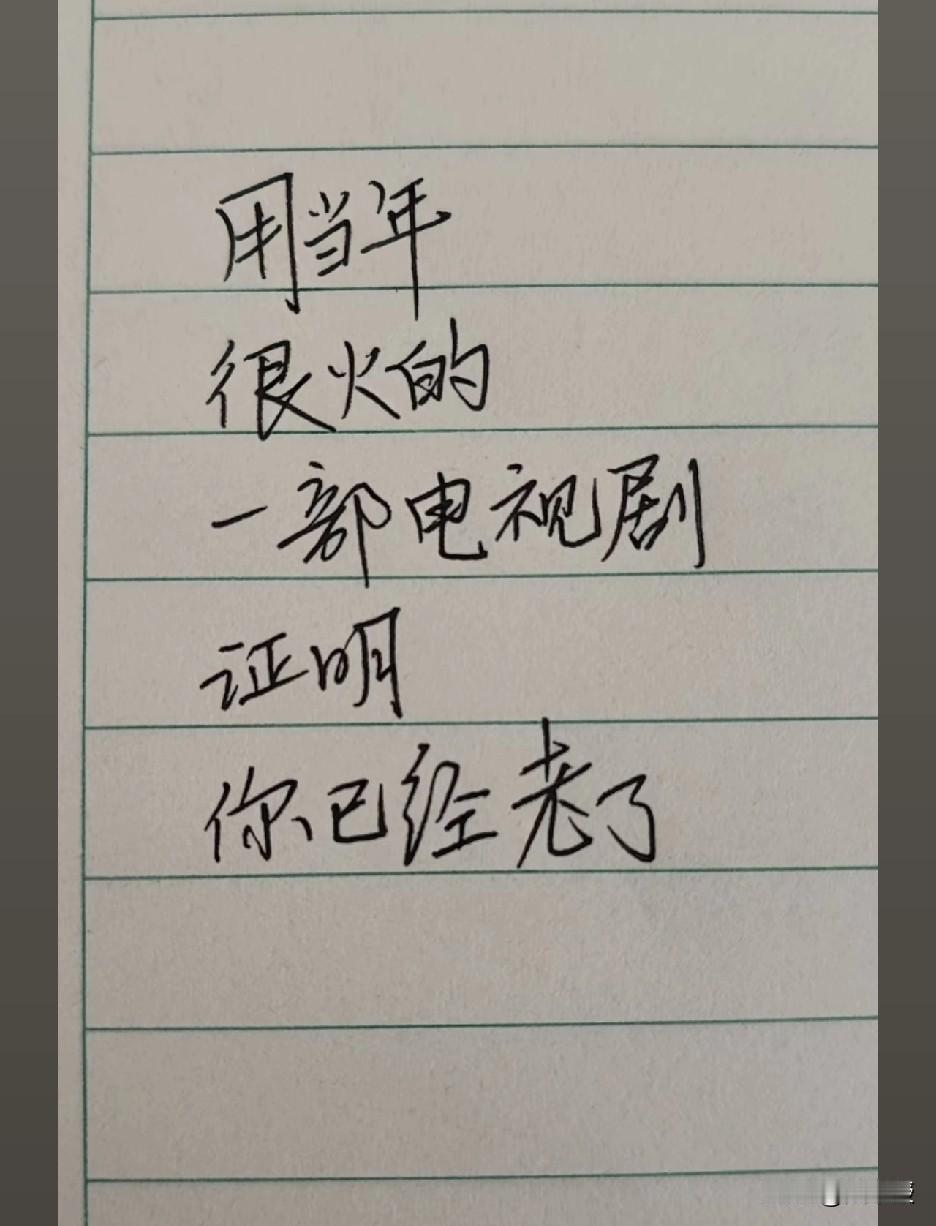 用当年
很火的
一部电视剧
证明
你已经老了